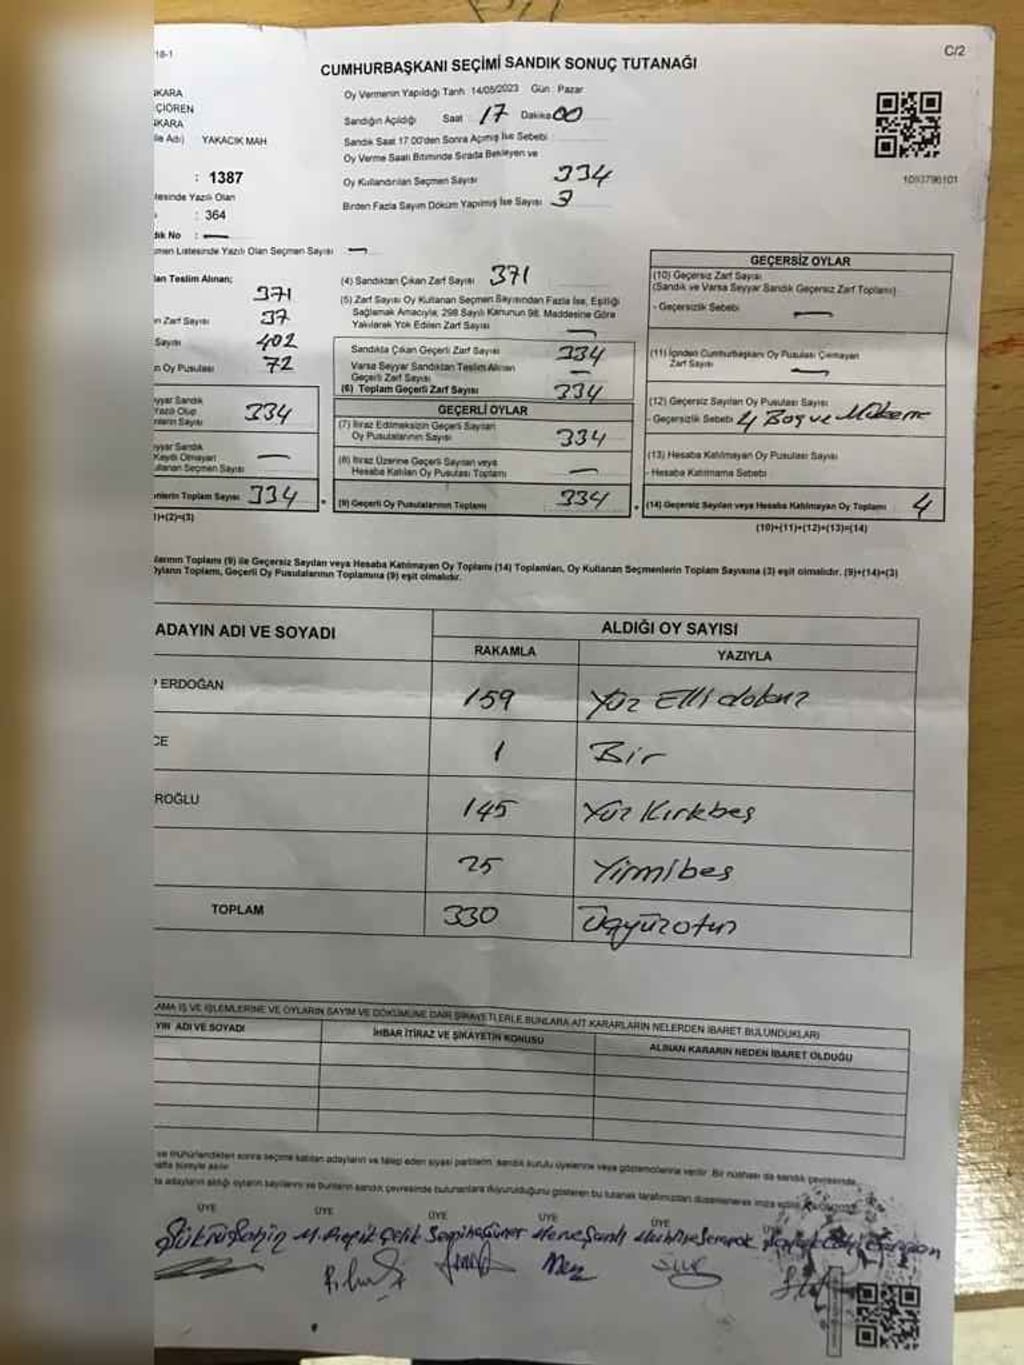 18-1
C/2
CUMHURBAŞKANI SEÇİMİ SANDIK SONUÇ TUTANAĞI
KARA
ÇİÖREN
KARA
le Adı) YAKACIK MAH
: 1387
: 364
dık No : —
men Listesinde Yazılı Olan Seçmen Sayısı —
Oy Vermenin Yapıldığı Tarih 14/05/2023 Gün : Pazar
Sandığın Açıldığı Saat 17 Dakika 00
Sandık Saat 17.00'den Sonra Açmış İse Sebebi
Oy Verme Saati Bitiminde Sırada Bekleyen ve
Oy Kullandırılan Seçmen Sayısı 334
Birden Fazla Sayım Döküm Yapılmış İse Sayısı 3
1093796101
an Teslim Alınan;
371
n Zarf Sayısı 37
Sayısı 402
n Oy Pusulası 72
yyar Sandık
Yazılı Olup
nların Sayısı 334
yyar Sandık
Kaydı Olmayan
ullanan Seçmen Sayısı —
nlerin Toplam Sayısı 334
1)+(2)=(3)
(4) Sandıktan Çıkan Zarf Sayısı 371
(5) Zarf Sayısı Oy Kullanan Seçmen Sayısından Fazla İse, Eşitliği
Sağlamak Amacıyla, 298 Sayılı Kanunun 98. Maddesine Göre
Yakılarak Yok Edilen Zarf Sayısı —
Sandıkta Çıkan Geçerli Zarf Sayısı 334
Varsa Seyyar Sandıktan Teslim Alınan
Geçerli Zarf Sayısı —
(6) Toplam Geçerli Zarf Sayısı 334
GEÇERLİ OYLAR
(7) İtiraz Edilmeksizin Geçerli Sayılan
Oy Pusulalarının Sayısı 334
(8) İtiraz Üzerine Geçerli Sayılan veya
Hesaba Katılan Oy Pusulası Toplamı —
(9) Geçerli Oy Pusulalarının Toplamı 334
GEÇERSİZ OYLAR
(10) Geçersiz Zarf Sayısı
(Sandık ve Varsa Seyyar Sandık Geçersiz Zarf Toplamı)
- Geçersizlik Sebebi —
(11) İçinden Cumhurbaşkanı Oy Pusulası Çıkmayan
Zarf Sayısı —
(12) Geçersiz Sayılan Oy Pusulası Sayısı
- Geçersizlik Sebebi 4 Boş ve Mükerrer
(13) Hesaba Katılmayan Oy Pusulası Sayısı
- Hesaba Katılmama Sebebi
(14) Geçersiz Sayılan veya Hesaba Katılmayan Oy Toplamı 4
(10)+(11)+(12)+(13)=(14)
larının Toplamı (9) ile Geçersiz Sayılan veya Hesaba Katılmayan Oy Toplamı (14) Toplamları, Oy Kullanan Seçmenlerin Toplam Sayısına (3) eşit olmalıdır. (9)+(14)=(3)
Oyların Toplamı, Geçerli Oy Pusulalarının Toplamına (9) eşit olmalıdır.
ADAYIN ADI VE SOYADI
ALDIĞI OY SAYISI
RAKAMLA YAZIYLA
ERDOĞAN 159 Yüz Elli dokuz
CE 1 Bir
ROĞLU 145 Yüz Kırkbeş
25 Yirmibeş
TOPLAM 330 Üçyüzotuz
AMA İŞ VE İŞLEMLERİNE VE OYLARIN SAYIM VE DÖKÜMÜNE DAİR ŞİKAYETLERLE BUNLARA AİT KARARLARIN NELERDEN İBARET BULUNDUKLARI
YIN ADI VE SOYADI
İHBAR İTİRAZ VE ŞİKAYETİN KONUSU
ALINAN KARARIN NEDEN İBARET OLDUĞU
ve mühürlendikten sonra seçime katılan adayların ve talep eden siyasi partilerin, sandık kurulu üyelerine veya gözlemcilerine verilir. Bir nüshası da sandık çevresinde
hafta süreyle asılır.
ÜYE ÜYE ÜYE ÜYE ÜYE
Şükrü Şahin M. Refik Çelik Semiha Güner